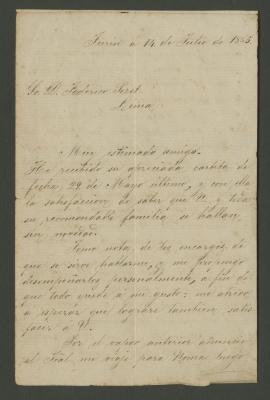 Turin á 14 de Julio de 1885.
Sr. D. Federico
Lima
Muy estimado amigo.
He recibido su apreciada cartita de
fecha 29 de Mayo último, y con ella
la satisfacción de saber que U. y toda
su recomendable familia se hallan
sin novedad.
Tomo nota de los encargos de
que se sirve hablarme, y me propongo
desempeñarlos personalmente, á fin de
que todo quede á mi gusto: me atrevo
á esperar que lograré tambien satis
facer á U.
Por el vapor anterior anuncié
al mi viaje para Roma luego